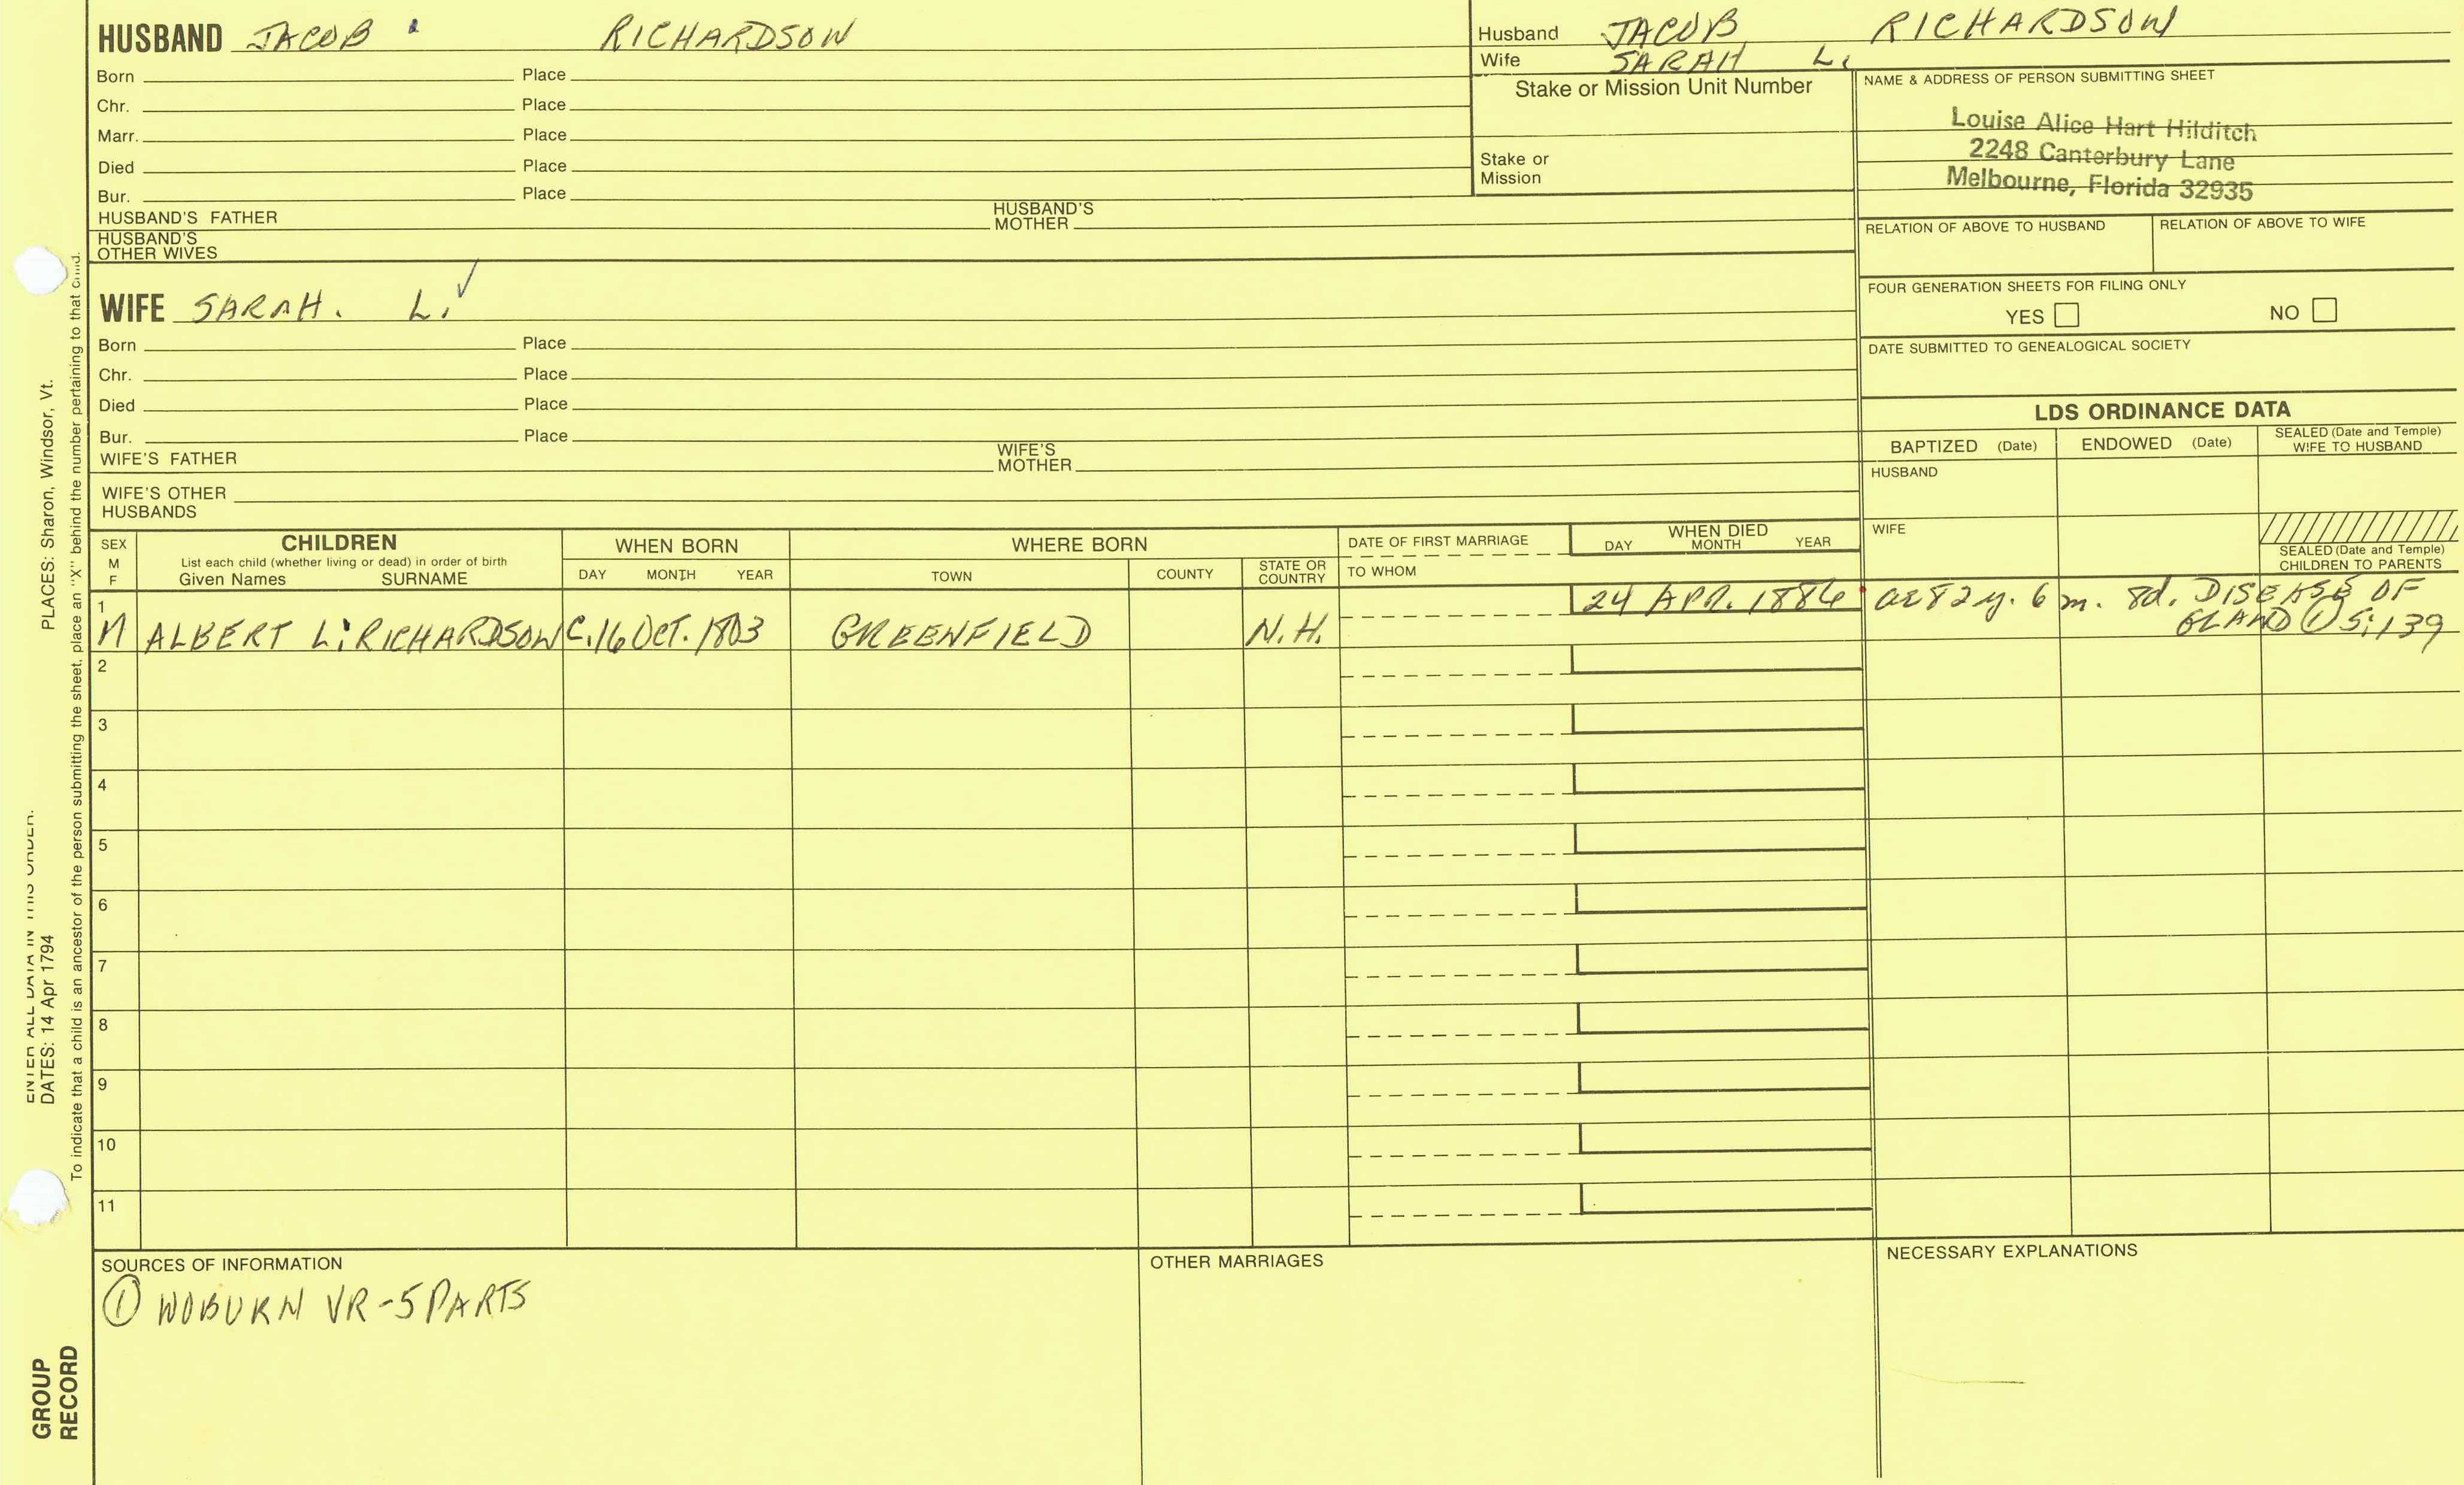 HUSBAND JACOB RICHARDSON
Born Place
Chr. Place
Marr. Place
Died Place
Bur. Place
HUSBAND'S FATHER HUSBAND'S MOTHER
HUSBAND'S OTHER WIVES
WIFE SARAH. L.
Born Place
Chr. Place
Died Place
Bur. Place
WIFE'S FATHER WIFE'S MOTHER
WIFE'S OTHER HUSBANDS
Husband JACOB RICHARDSON
Wife SARAH L.
Stake or Mission Unit Number
Stake or
Mission
NAME & ADDRESS OF PERSON SUBMITTING SHEET
Louise Alice Hart Hilditch
2248 Canterbury Lane
Melbourne, Florida 32935
RELATION OF ABOVE TO HUSBAND RELATION OF ABOVE TO WIFE
FOUR GENERATION SHEETS FOR FILING ONLY
YES NO
DATE SUBMITTED TO GENEALOGICAL SOCIETY
LDS ORDINANCE DATA
BAPTIZED (Date) ENDOWED (Date) SEALED (Date and Temple) WIFE TO HUSBAND
HUSBAND
WIFE
SEALED (Date and Temple)
CHILDREN TO PARENTS
SEX
M
F
CHILDREN
List each child (whether living or dead) in order of birth
Given Names SURNAME
WHEN BORN
DAY MONTH YEAR
WHERE BORN
TOWN COUNTY STATE OR COUNTRY
DATE OF FIRST MARRIAGE
TO WHOM
WHEN DIED
DAY MONTH YEAR
1
24 APR. 1886 ae 82 y. 6 m. 8d. DISEASE OF
M ALBERT L. RICHARDSON C. 16 OCT. 1803 GREENFIELD N.H. GLAND ① 5:139
2
3
4
5
6
7
8
9
10
11
SOURCES OF INFORMATION
① WOBURN VR-5 PARTS
OTHER MARRIAGES
NECESSARY EXPLANATIONS
ENTER ALL DATA IN THIS ORDER.
DATES: 14 Apr 1794 PLACES: Sharon, Windsor, Vt.
To indicate that a child is an ancestor of the person submitting the sheet, place an "X" behind the number pertaining to that child.
GROUP
RECORD